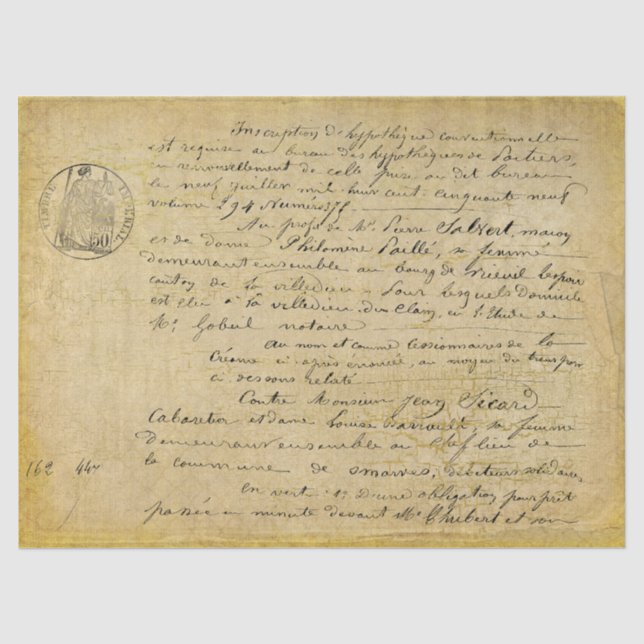 Inscription d'hypothèque conventionnelle
est requise au bureau des hypothèques de Poitiers,
en renouvellement de celle prise au dit bureau
le neuf juillet mil huit cent cinquante neuf
volume 294 Numéro 375
Au profit de Mr. Pierre Salvert, maçon
et de dame Philomène Paillé, sa femme
demeurant ensemble au bourg de
canton de la villedieu, Pour lesquels Domicile
est élu à la villedieu du Clain, en l'Etude de
Me. Gobeil notaire
au nom et comme cessionnaires de la
Créance ci après énoncée, au moyen du transport
ci dessous relaté
Contre Monsieur Jean Sicard
Cabaretier et dame Louise Barrault, sa femme
Demeurant ensemble au chef lieu de
la commune de smarves, débiteurs solidaires
En vertu 1° D'une obligation pour prêt
passée en minute devant Me Chuibert et son
TIMBRE IMPERIAL
50
162 44